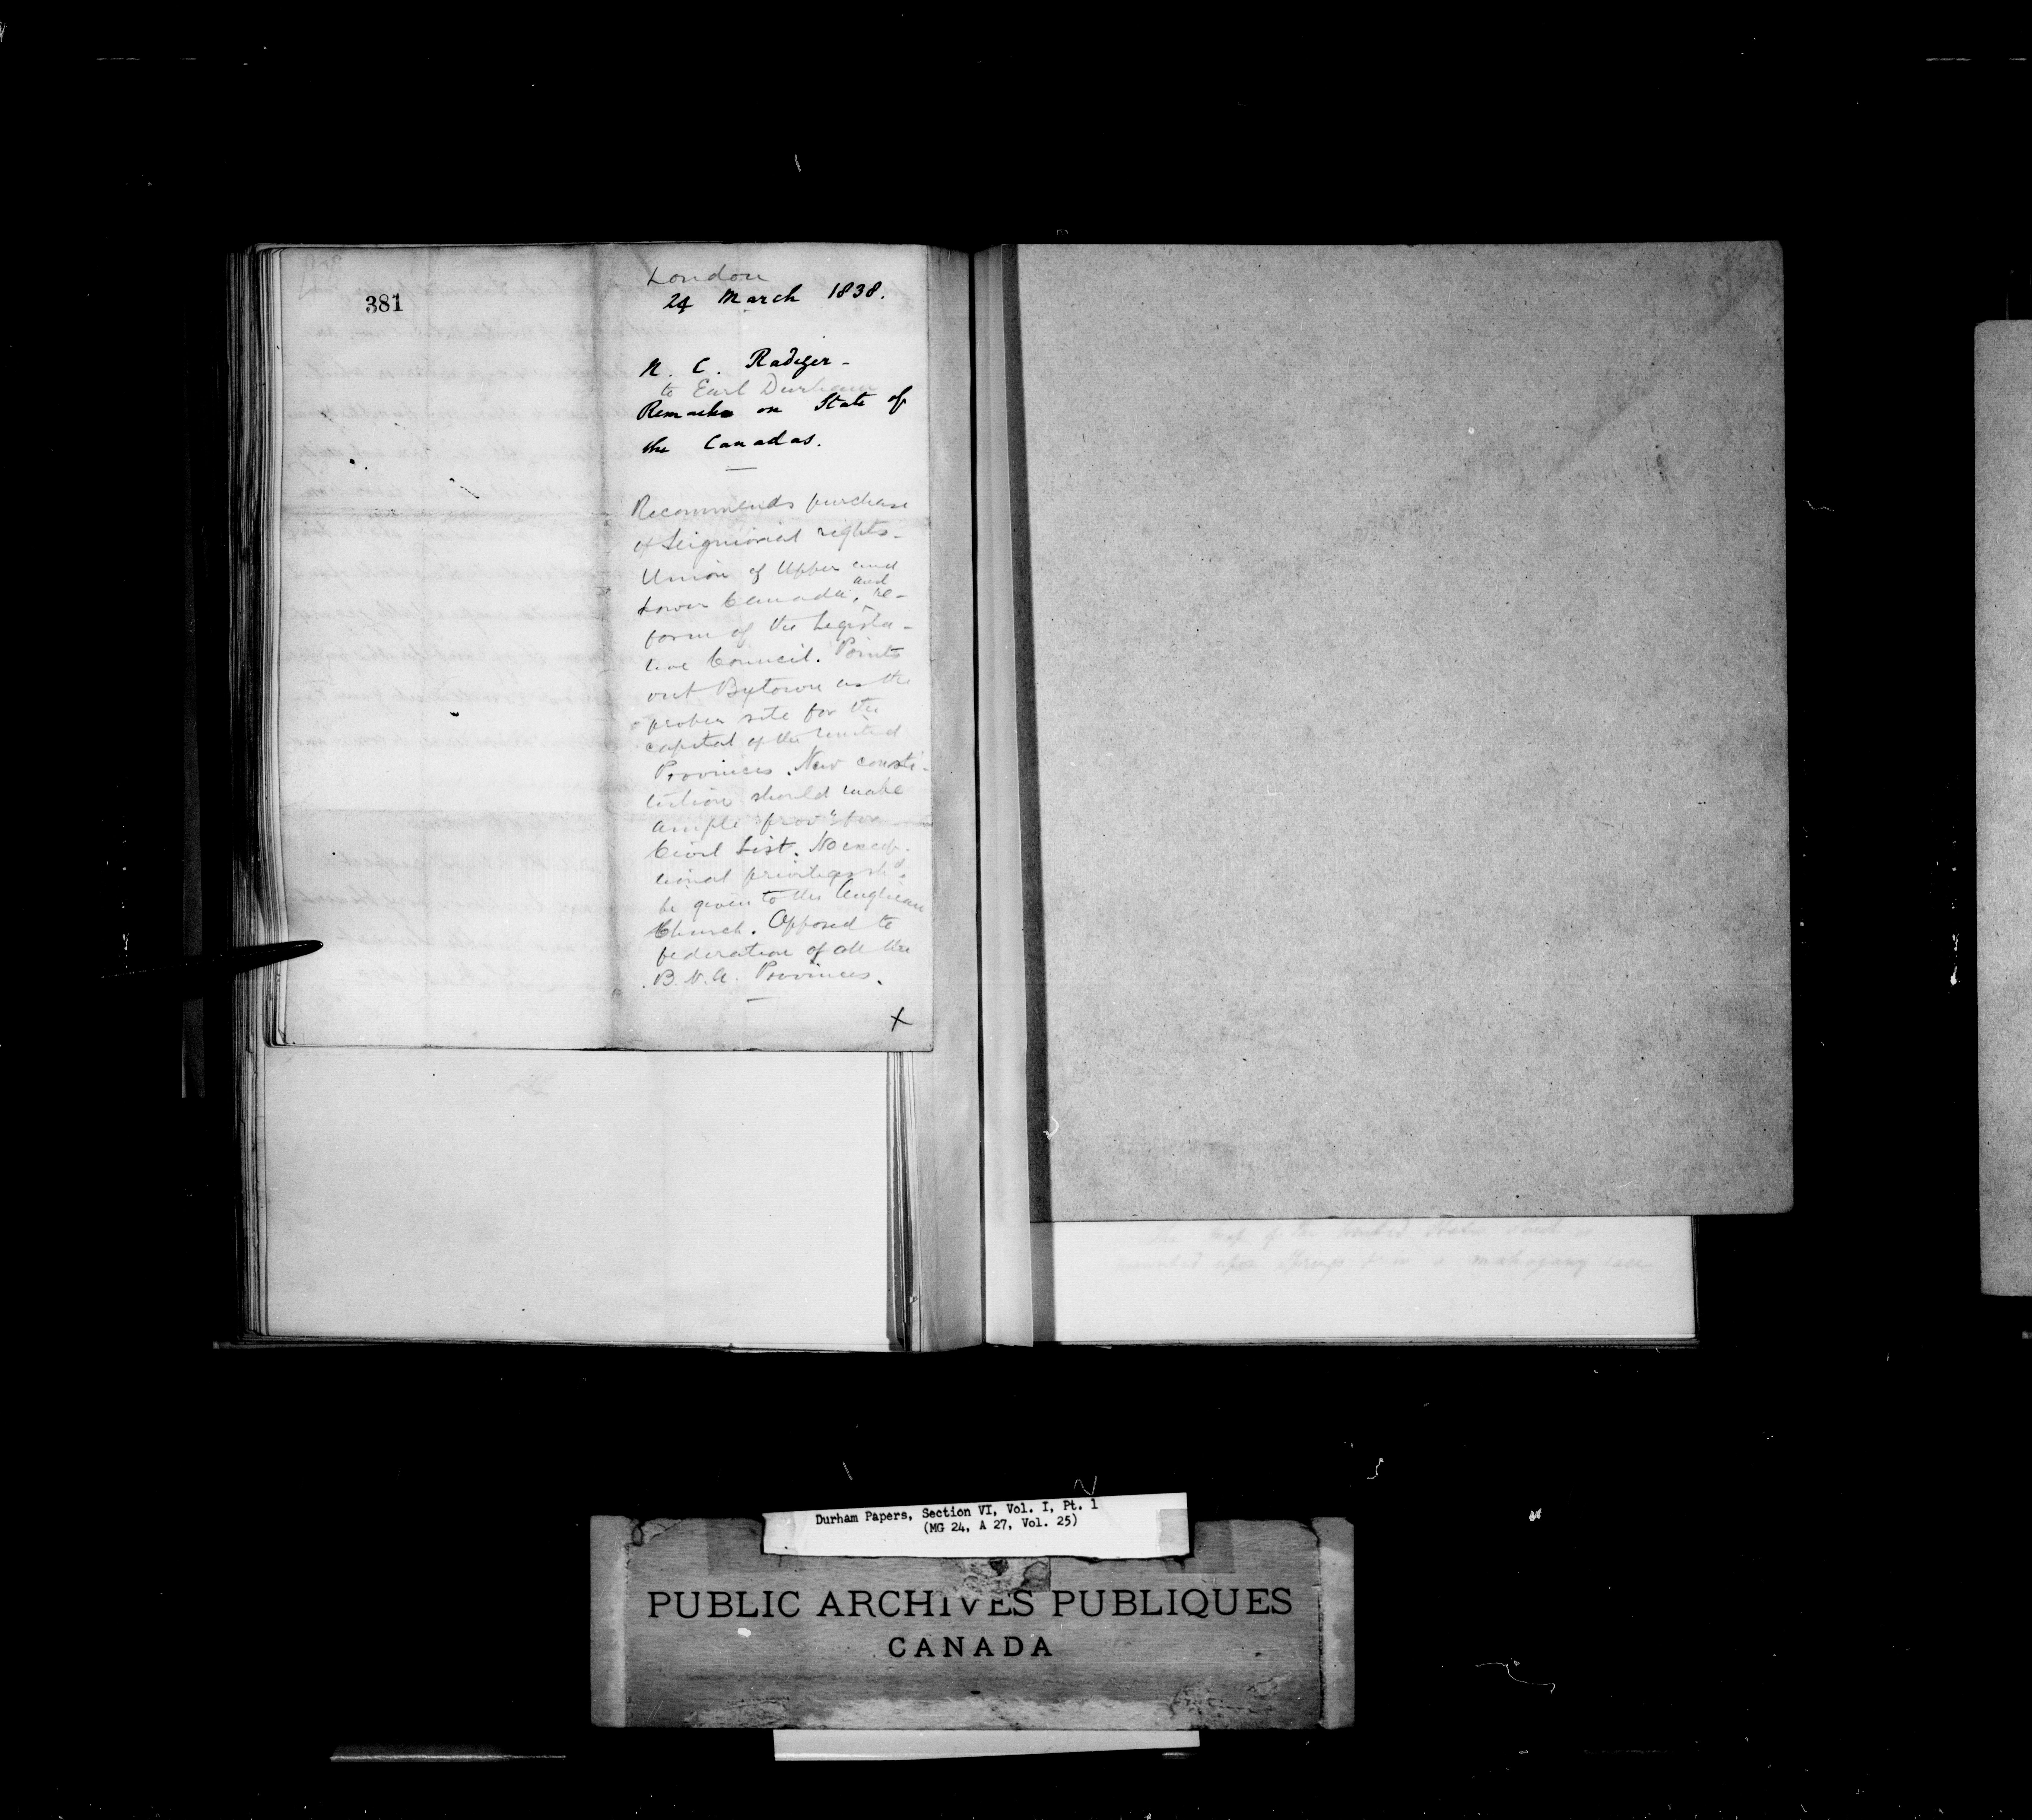 381
London
24 March 1838.
C. Radiger -
to Earl Durham
Remarks on State of
the Canadas.
Recommends purchase
of Seigniorial rights -
Union of Upper and
Lower Canada, and re-
form of the Legisla-
tive Council. Points
out Bytown as the
proper site for the
capital of the United
Provinces. New consti-
tution should make
ample prov'n for
Civil List. No excep-
tional privileges sh'd
be given to the Anglican
Church. Opposed to
federation of all the
B. N. A. Provinces.
X
the map of the United States which is
mounted upon Springs & in a mahogany case
Durham Papers, Section VI, Vol. I, Pt. 1
(MG 24, A 27, Vol. 25)
PUBLIC ARCHIVES PUBLIQUES
CANADA